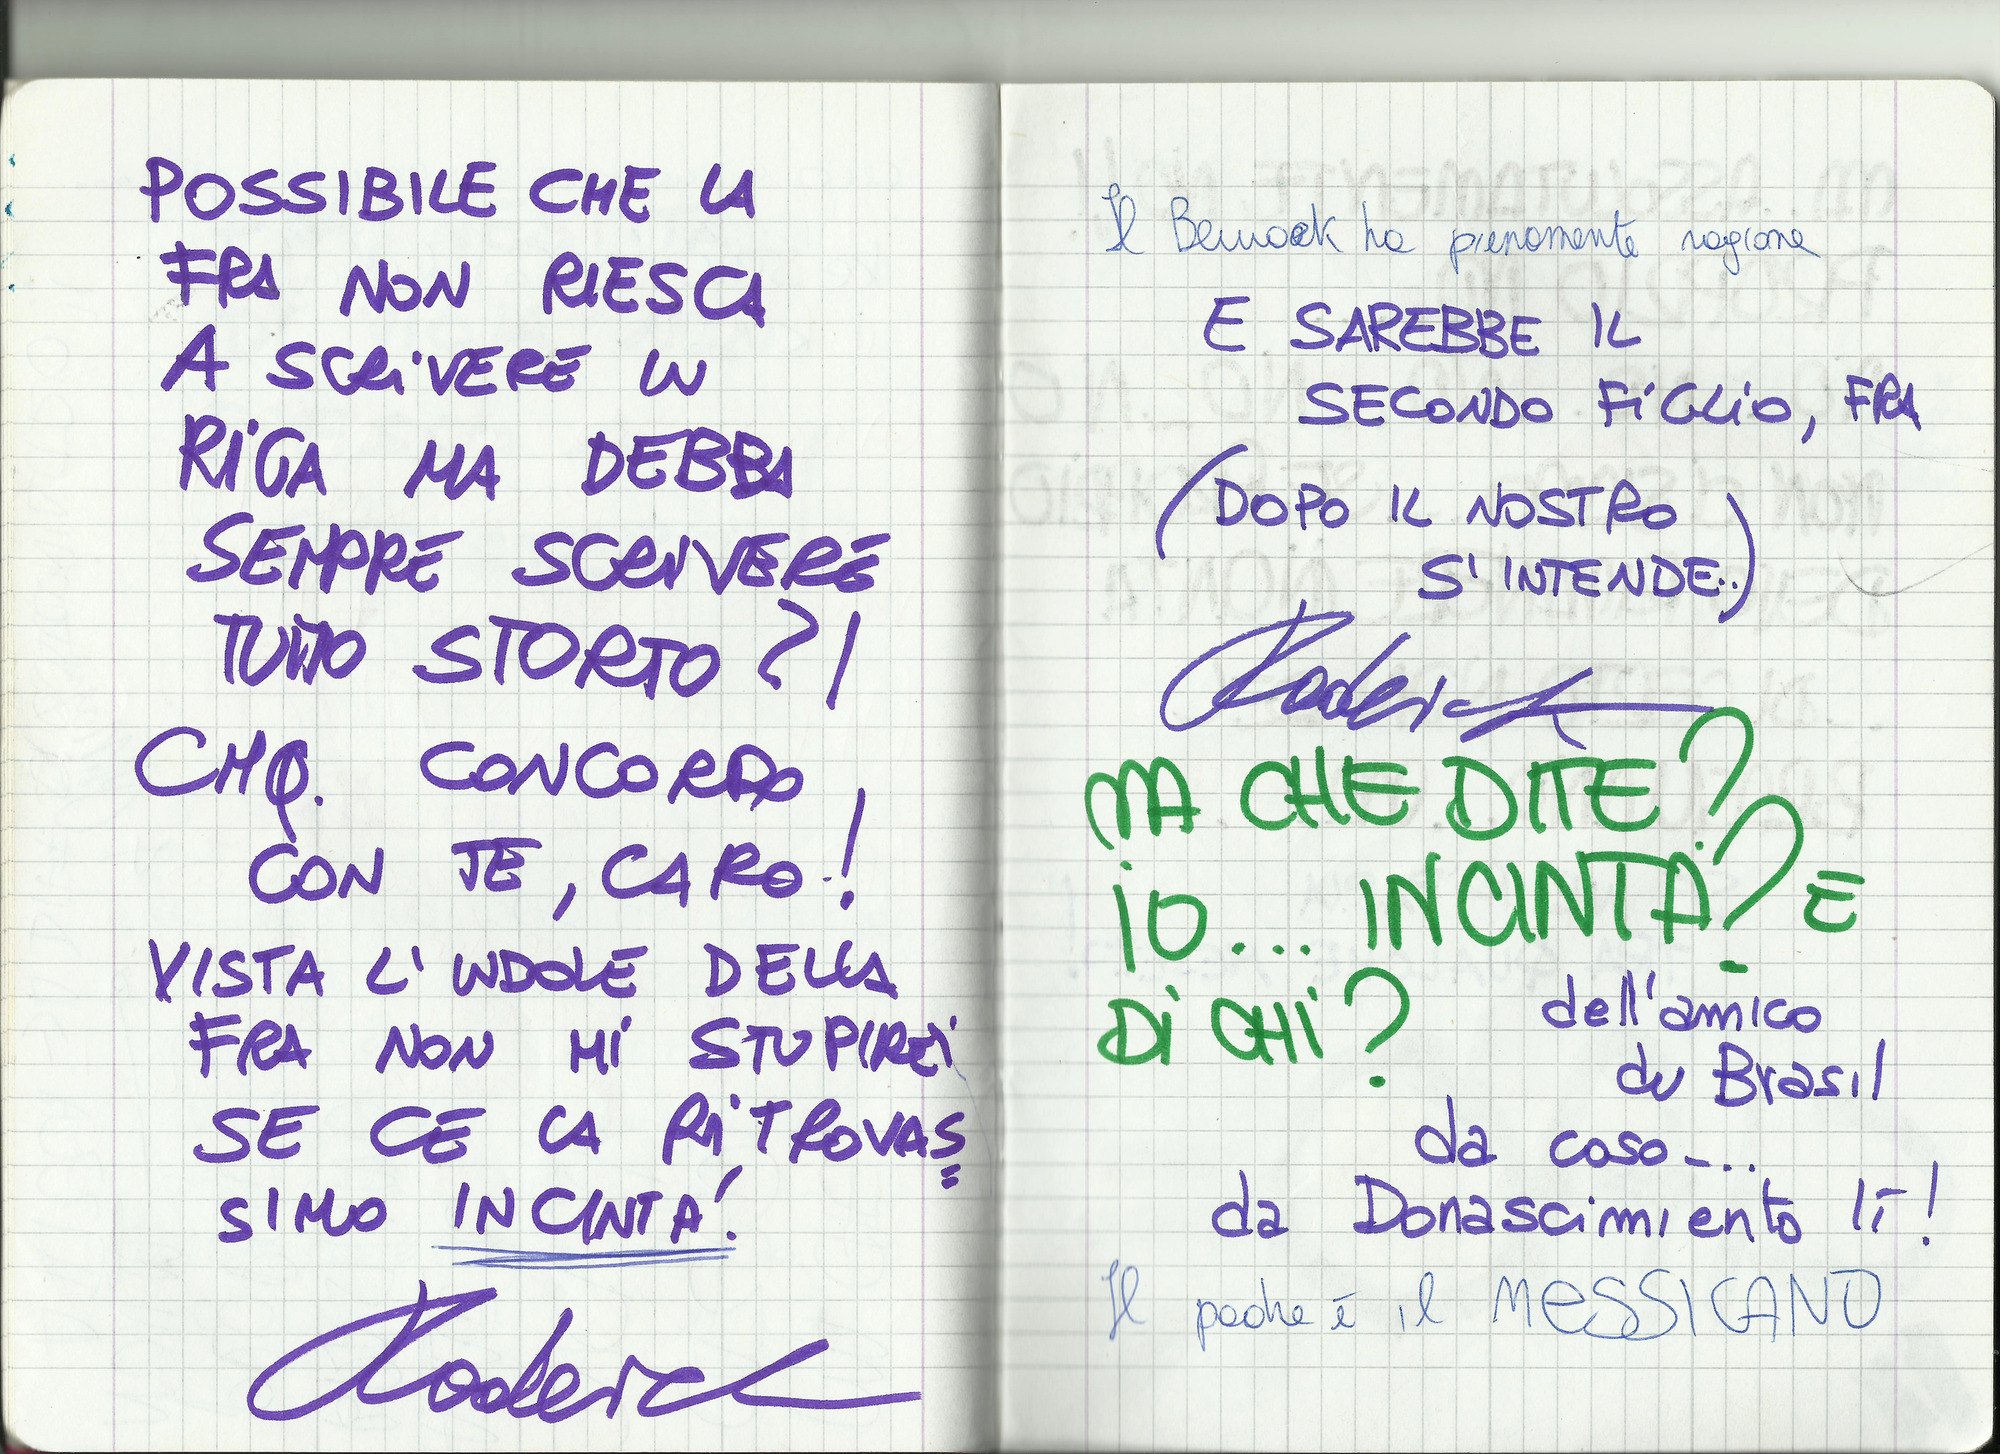 POSSIBILE CHE LA
FRA NON RIESCA
A SCRIVERE IN
RIGA MA DEBBA
SEMPRE SCRIVERE
TUTTO STORTO?!
CMQ. CONCORDO
CON TE, CARO!
VISTA L'INDOLE DELLA
FRA NON MI STUPIREI
SE CE LA RITROVAS
SIMO INCINTA!
Roderick
Il ha pienamente ragione
E SAREBBE IL
SECONDO FIGLIO, FRA
(DOPO IL NOSTRO
S'INTENDE..)
Roderick
MA CHE DITE?
IO... INCINTA? E
DI CHI?
dell'amico
du Brasil
da coso...
da Donascimiento lì!
Il padre è il MESSICANO